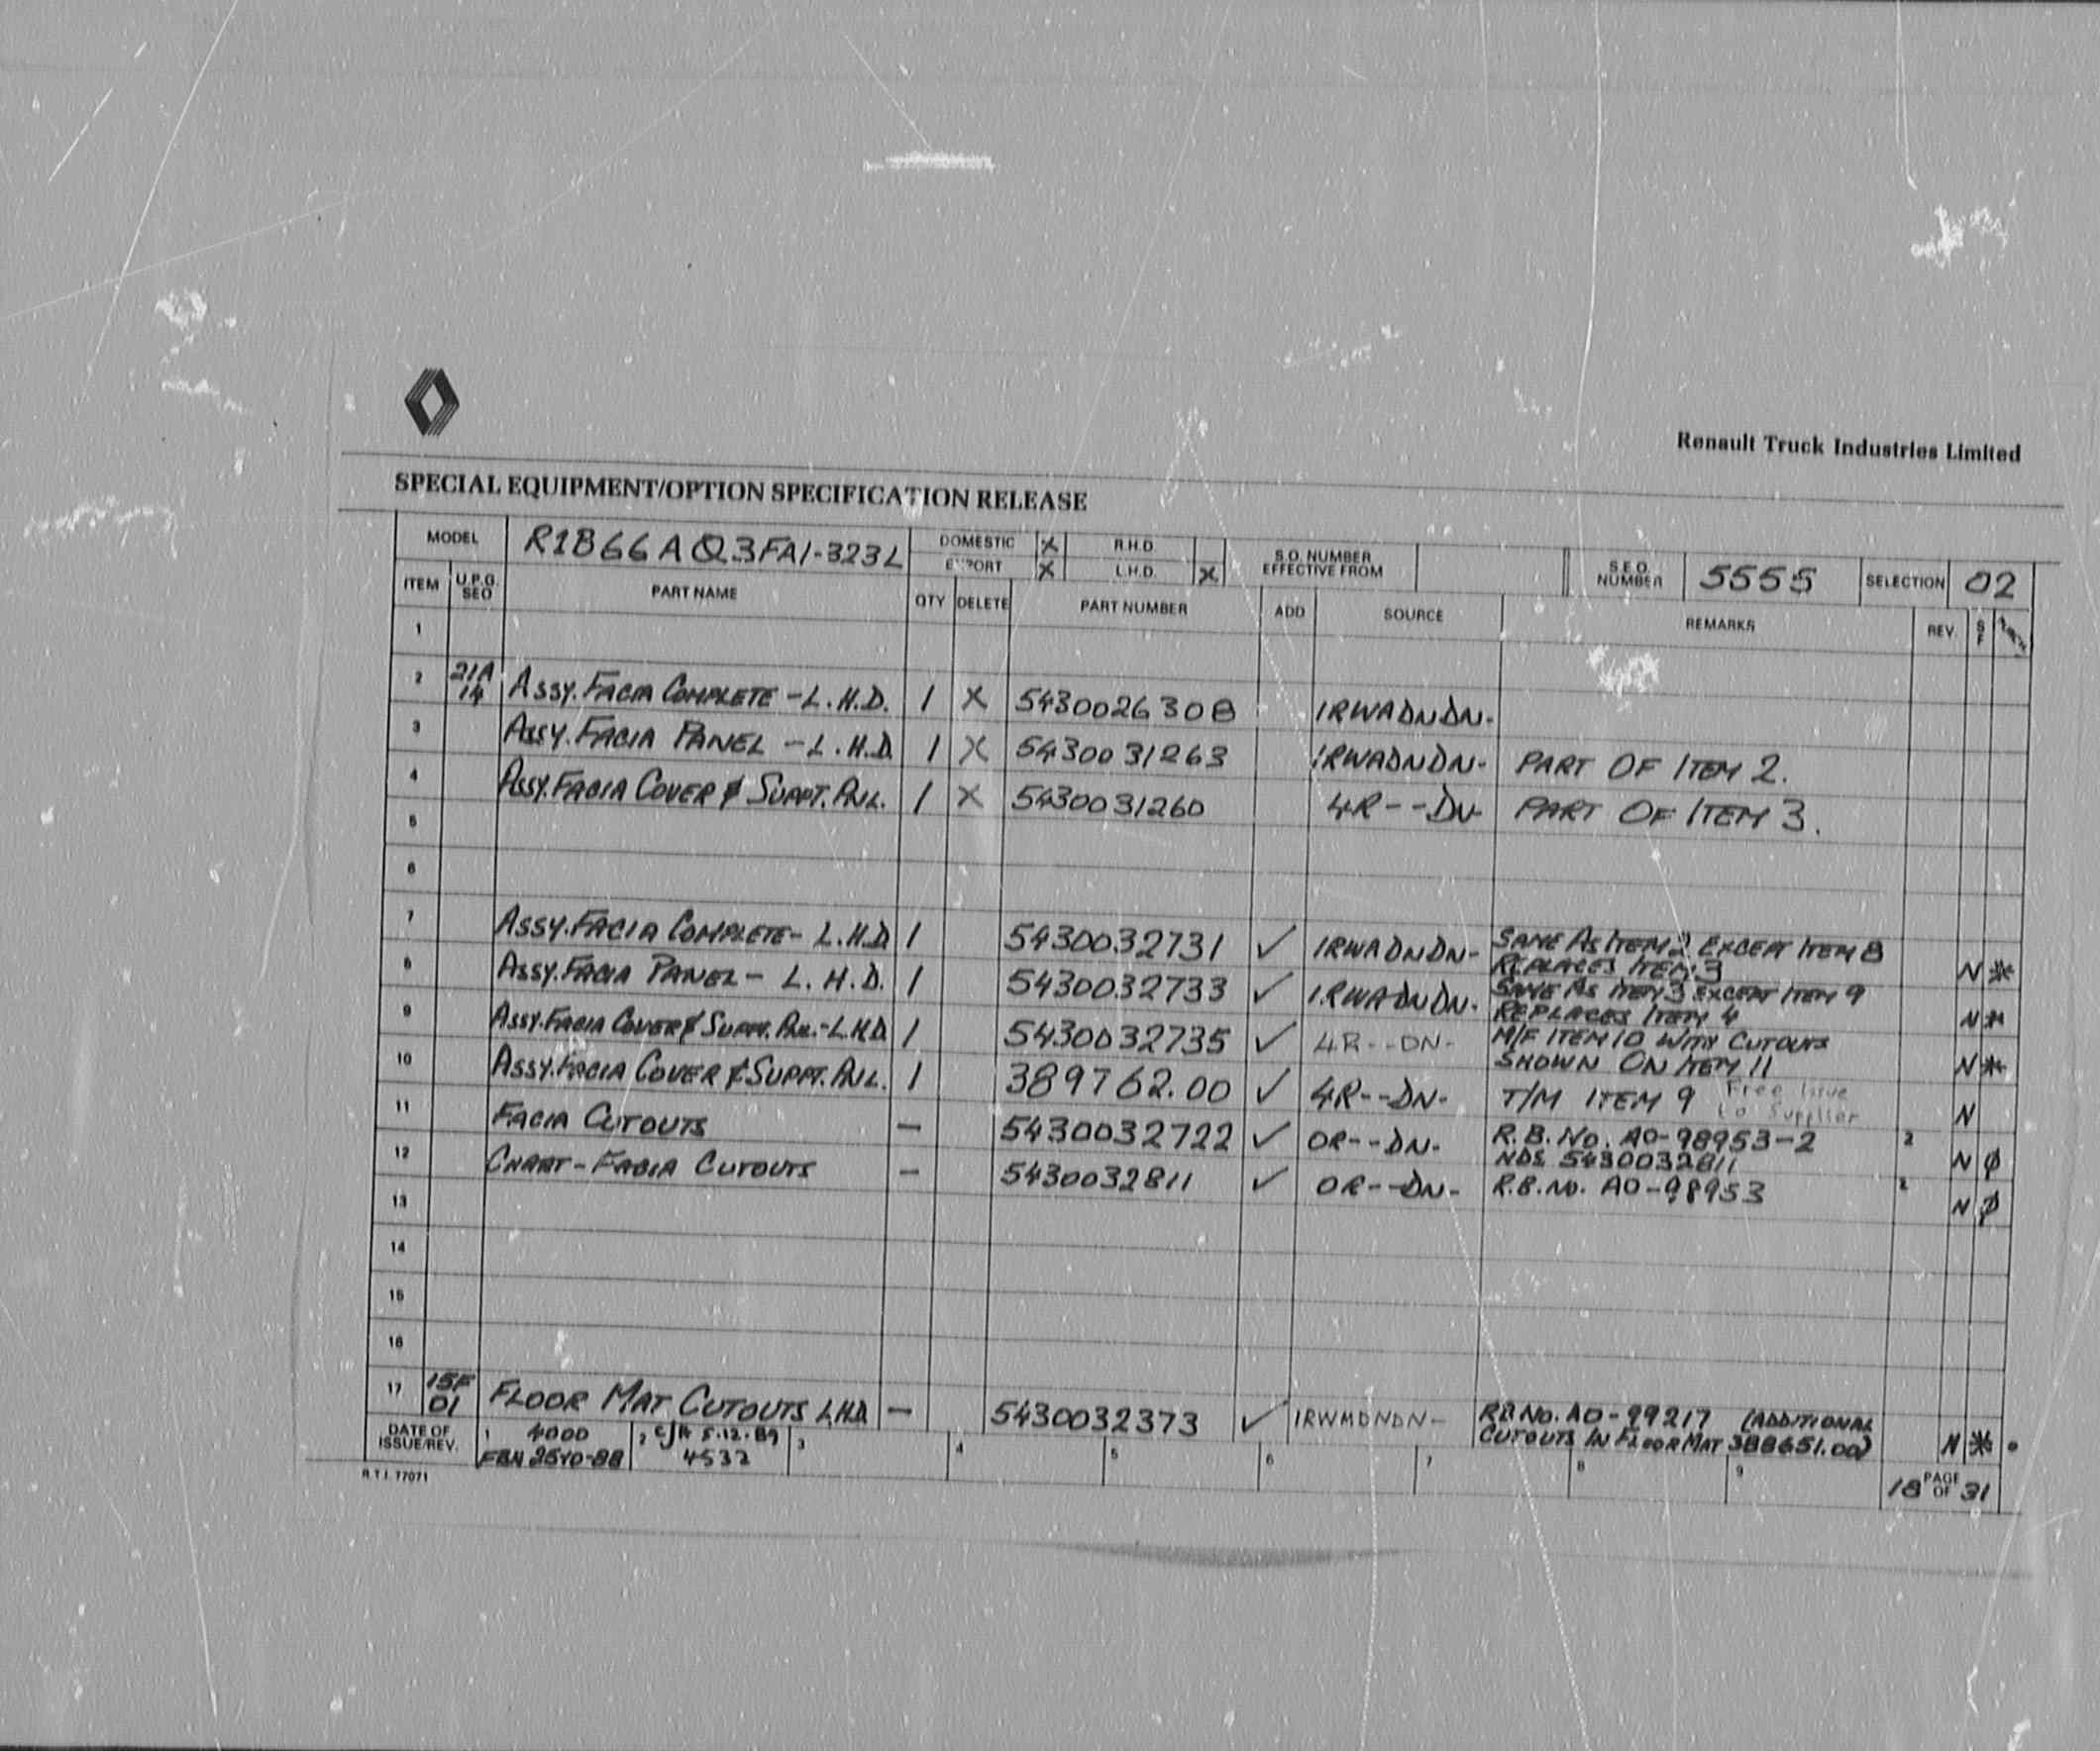 Renault Truck Industries Limited
SPECIAL EQUIPMENT/OPTION SPECIFICATION RELEASE
MODEL R1B66AQ3FA1-323L DOMESTIC X R.H.D. S.O. NUMBER EFFECTIVE FROM S.E.O. NUMBER 5555 SELECTION 02
EXPORT X L.H.D. X
ITEM U.P.G. SEO PART NAME QTY DELETE PART NUMBER ADD SOURCE REMARKS REV. S F
1
2 21A 14 ASSY. FACIA COMPLETE - L.H.D. 1 X 5430026308 1RWADNDN-
3 ASSY. FACIA PANEL - L.H.D. 1 X 5430031263 1RWADNDN- PART OF ITEM 2.
4 ASSY. FACIA COVER & SUPPT. PNL. 1 X 5430031260 4R--DN- PART OF ITEM 3.
5
6
7 ASSY. FACIA COMPLETE - L.H.D 1 5430032731 ✓ 1RWADNDN- SAME AS ITEM 2 EXCEPT ITEM 8
REPLACES ITEM 3 N *
8 ASSY. FACIA PANEL - L.H.D. 1 5430032733 ✓ 1RWADNDN- SAME AS ITEM 3 EXCEPT ITEM 9
REPLACES ITEM 4 N *
9 ASSY. FACIA COVER & SUPPT. PNL. - L.H.D 1 5430032735 ✓ 4R--DN- M/F ITEM 10 WITH CUTOUTS
SHOWN ON ITEM 11 N *
10 ASSY. FACIA COVER & SUPPT. PNL. 1 389762.00 ✓ 4R--DN- T/M ITEM 9 Free Issue
to Supplier N
11 FACIA CUTOUTS - 5430032722 ✓ 0R--DN- R.B. No. AO-98953-2 2
NDS 5430032811 N Ø
12 CHART - FACIA CUTOUTS - 5430032811 ✓ 0R--DN- R.B. NO. AO-98953 2 N Ø
13
14
15
16
17 15F 01 FLOOR MAT CUTOUTS L.H.D. - 5430032373 ✓ 1RWMDNDN- RB No. AO-99217 (ADDITIONAL
CUTOUTS IN FLOOR MAT 388651.00) N *
DATE OF ISSUE/REV. 1 4000 2 5.12.89 3 4 5 6 7 8 9
4532
R.T.I. 77071
18 PAGE OF 31